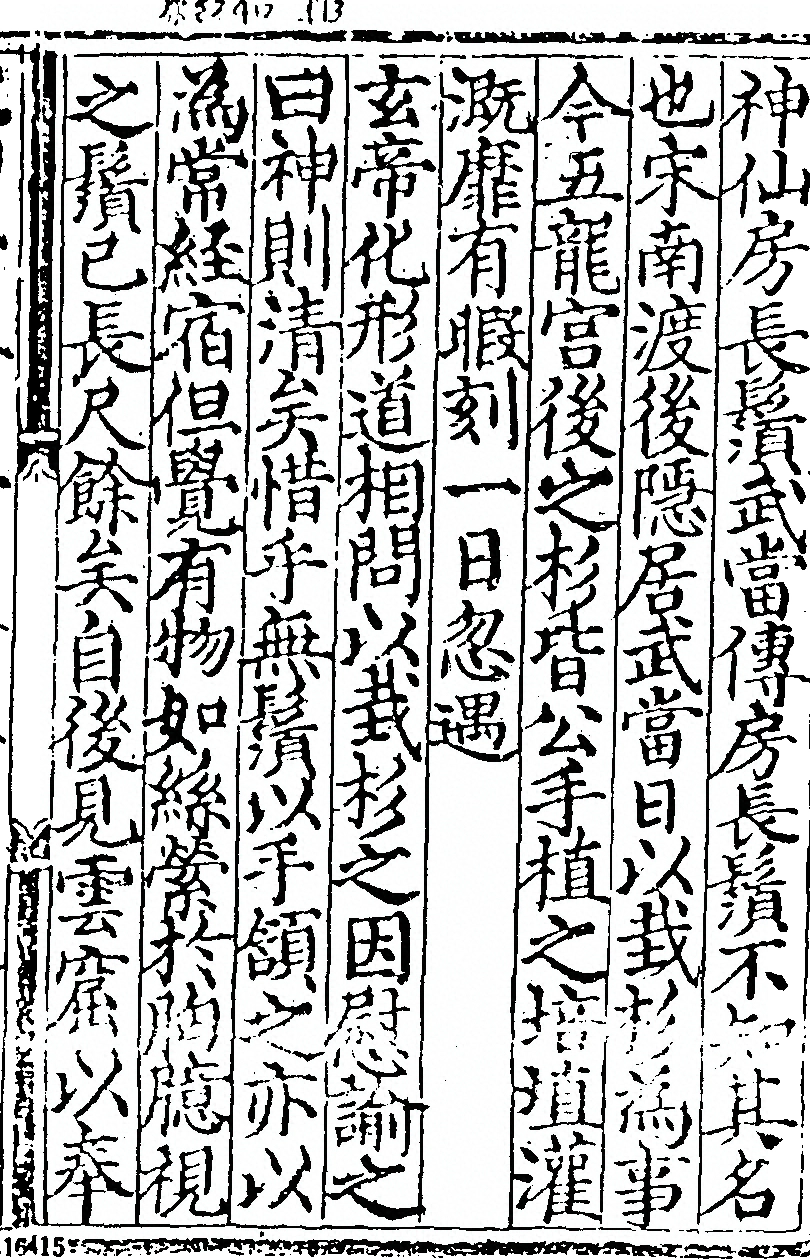 神仙房長鬚武當傳房長鬚不知其名
也宋南渡後隱居武當日以栽杉為事
今五龍宫後之杉皆公手植之培埴灌
溉靡有暇刻一日忽遇
玄帝化形道相問以栽杉之因慰諭之
曰神則清矣惜乎無鬚以手頷之亦以
為常経宿但覺有物如絲縈於胸臆視
之鬚已長尺餘矣自後見雲窟以奉
16415